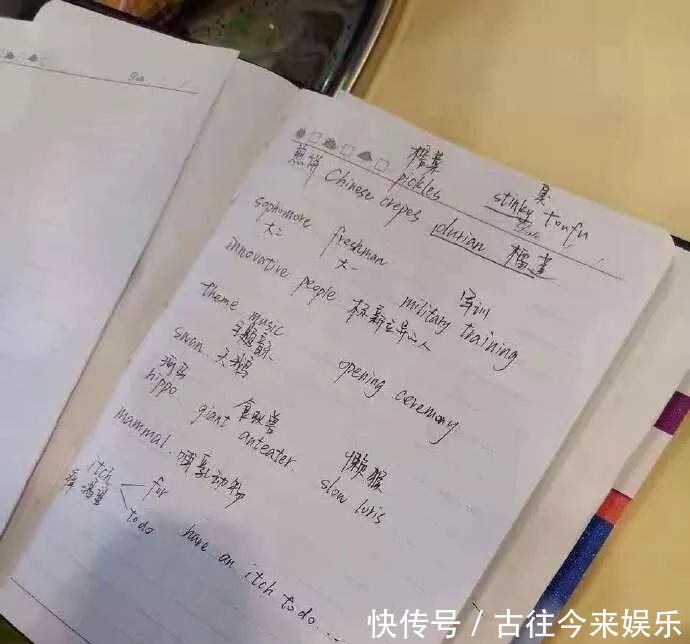 榨菜
臭
煎饼 Chinese crepes pickles stinky toufu
durian 榴莲
sophomore freshman
大二 大一 军训
innovative people 标新立异之人 military training
theme music
主题音乐
swan 天鹅 opening ceremony
河马 食蚁兽
hippo giant anteater 懒猴
mammal 哺乳动物 slow loris
itch for
痒 渴望
to do have an itch to do ...
快传号 / 古往今来娱乐